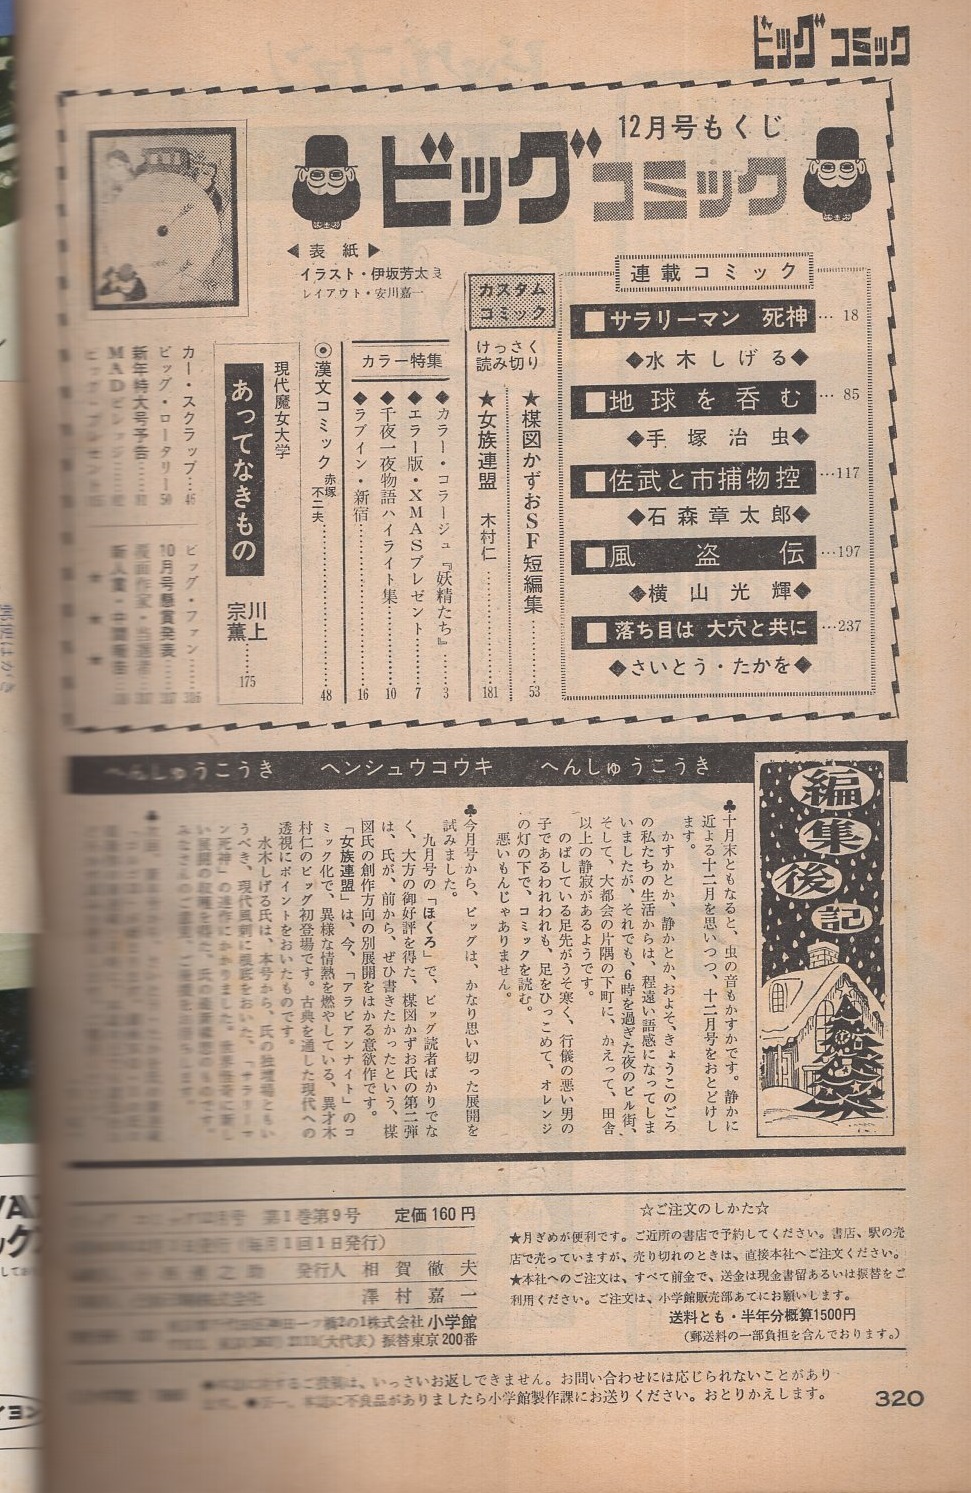 ビッグコミック
12月号もくじ
ビッグコミック
◀表紙▶
イラスト・伊坂芳太良
レイアウト・安川嘉一
連載コミック
■サラリーマン 死神…18
◆水木しげる◆
■地球を呑む…85
◆手塚治虫◆
■佐武と市捕物控…117
◆石森章太郎◆
■風盗伝…197
◆横山光輝◆
■落ち目は 大穴と共に…237
◆さいとう・たかを◆
カスタムコミック
けっさく読み切り
★楳図かずおSF短編集……53
★女族連盟 木村仁……181
カラー特集
◆カラー・コラージュ『妖精たち』…3
◆エラー版・XMASプレゼント……7
◆千夜一夜物語ハイライト集……10
◆ラブイン・新宿……16
◉漢文コミック 赤塚不二夫……48
現代魔女大学
あってなきもの
川上宗薫……175
カー・スクラップ…45
ビッグ・ロータリー50
新年特大号予告……
ビッグ・ファン……
10月号懸賞発表……
へんしゅうこうき ヘンシュウコウキ へんしゅうこうき
編集後記
♣十月末ともなると、虫の音もかすかです。静かに
近よる十二月を思いつつ、十二月号をおとどけし
ます。
かすかとか、静かとか、およそ、きょうこのごろ
の私たちの生活からは、程遠い語感になってしま
いましたが、それでも、6時を過ぎた夜のビル街、
そして、大都会の片隅の下町に、かえって、田舎
以上の静寂があるようです。
のばしている足先がうそ寒く、行儀の悪い男の
子であるわれわれも、足をひっこめて、オレンジ
の灯の下で、コミックを読む。
悪いもんじゃありません。
♣今月号から、ビッグは、かなり思い切った展開を
試みました。
九月号の「ほくろ」で、ビッグ読者ばかりでな
く、大方の御好評を得た、楳図かずお氏の第二弾
は、氏が、前から、ぜひ書きたかったという、楳
図氏の創作方向の別展開をはかる意欲作です。
「女族連盟」は、今、「アラビアンナイト」のコ
ミック化で、異様な情熱を燃やしている、異才木
村仁のビッグ初登場です。古典を通した現代への
透視にポイントをおいたものです。
水木しげる氏は、本号から、氏の独壇場ともい
うべき、現代風刺に根底をおいた、「サラリーマ
ン死神」の連作にかかりました。
第1巻第9号 定価160円
(毎月1回1日発行)
発行人 相賀徹夫
澤村嘉一
一ツ橋2の1株式会社 小学館
(大代表) 振替東京200番
☆ご注文のしかた☆
★月ぎめが便利です。ご近所の書店で予約してください。書店、駅の売
店で売っていますが、売り切れのときは、直接本社へご注文ください。
★本社へのご注文は、すべて前金で、送金は現金書留あるいは振替をご
利用ください。ご注文は、小学館販売部あてにお願いします。
送料とも・半年分概算1500円
(郵送料の一部負担を含んでおります。)
は、いっさいお返しできません。お問い合わせには応じられないことがあり
本誌に不良品がありましたら小学館製作課にお送りください。おとりかえします。
320